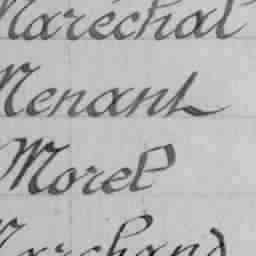 Maréchal
Menant
Morel
Marchand